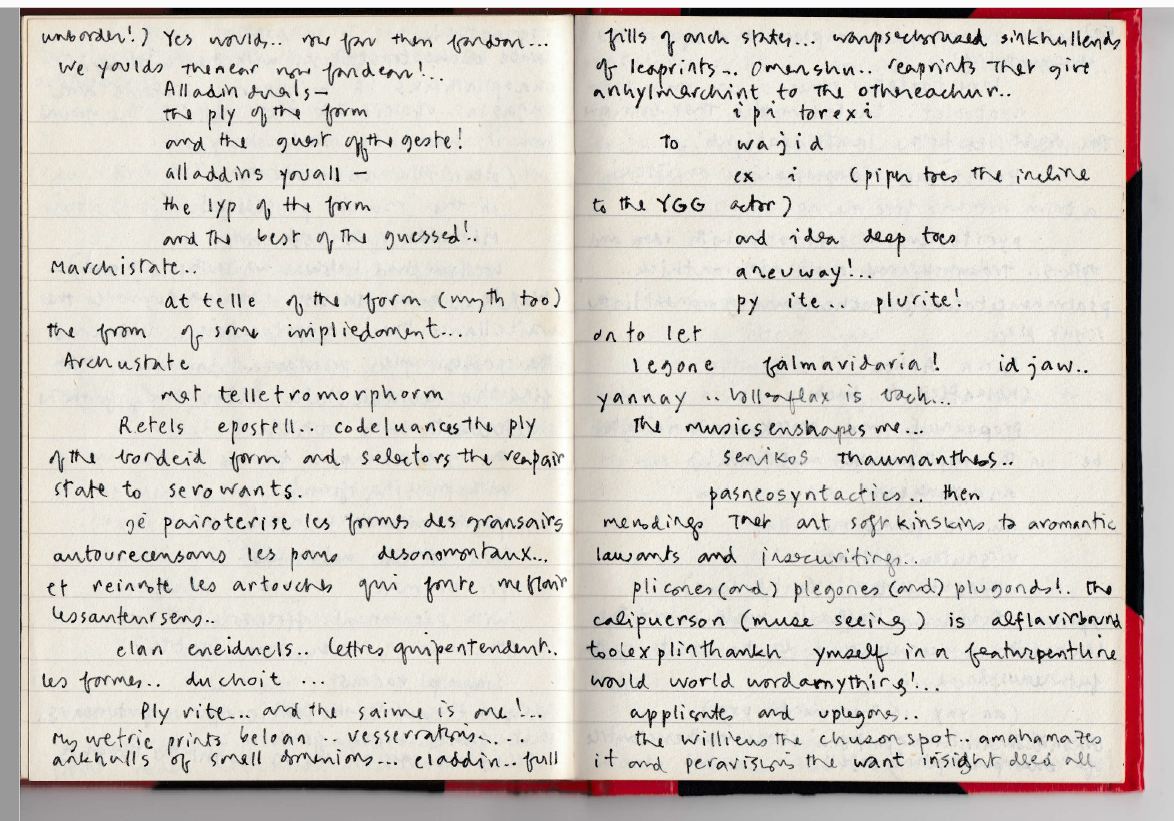 unborder!) Yes woulds.. now for then fardean...
we youlds thenear now fardean!..
Alladin duals—
the ply of the form
and the guest of the geste!
alladdins youall —
the lyp of the form
and the best of the guessed!..
Marchistate..
at telle of the form (myth too)
the from of some impliedoment...
Archustate
met telletromorphorm
Retels epostell.. codeluances the ply
of the bordeid form and selectors the reapair
state to serowants.
je pairoterise les formes des gransairs
autourecensans les pans desonomontaux...
et reinvote les artouches qui fonte meflair
lessanteursens..
elan eneiduels.. lettres quipentendent..
les formes.. du choit ...
Ply rite... and the saime is one!...
my wetric prints beloan .. vesserrations...
ankhulls of small domenions... claddin.. full
fills of arch states... warpsechorused sinkhullends
of leaprints... Omenshu.. reaprints that give
ankylmarchint to the othereachur..
i p i torex i
To wajid
ex i (piph toes the incline
to the YGG actor)
and idea deep toes
aneuway!..
py ite . plurite!
on to let
legone falmavidaria! id jaw..
yannay .. is back...
The musicsenshapes me...
senikos Thaumanthess..
pasneosyntactics... then
mendings that ant soft kinskins to aromantic
lawants and insecuritings..
plicones (and) plegones (and) plugonds!. The
calipuerson (muse seeing) is alflavirbound
toolex plinthankh ymself in a featurpenthine
would world wordamything!...
applicates and uplegones..
the williens the chusonspot.. amahamazes
it and peravisions the want insight deed all